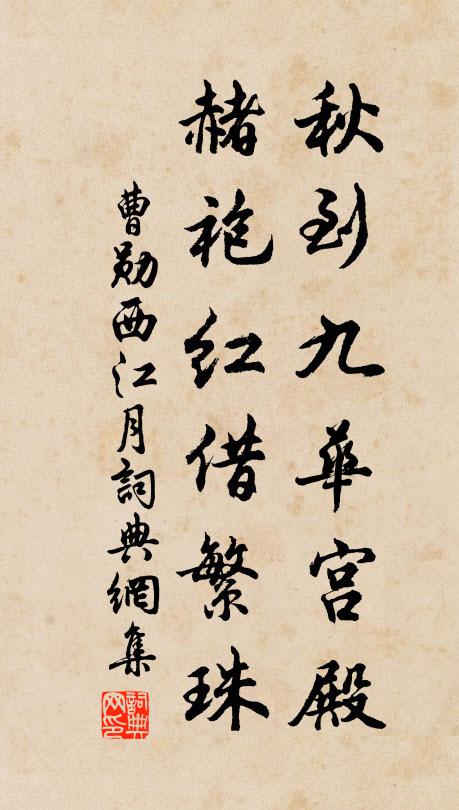 秋到九華宫殿
赭袍红借繁珠
曹勋西江月詞典網集
詞典网印